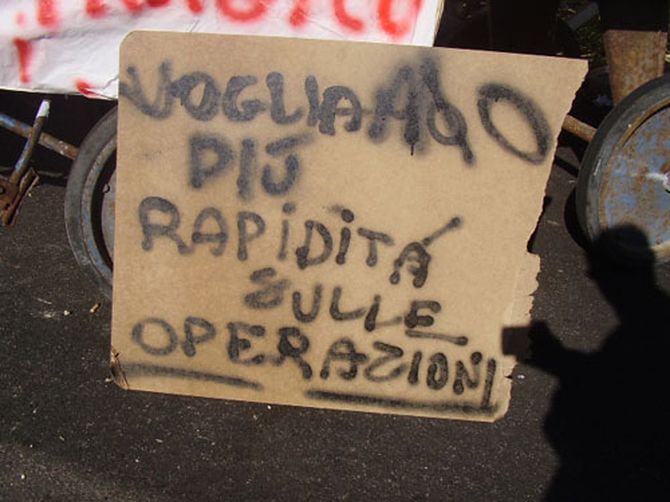 VOGLIAMO
PIÚ
RAPIDITÁ
SULLE
OPERAZIONI